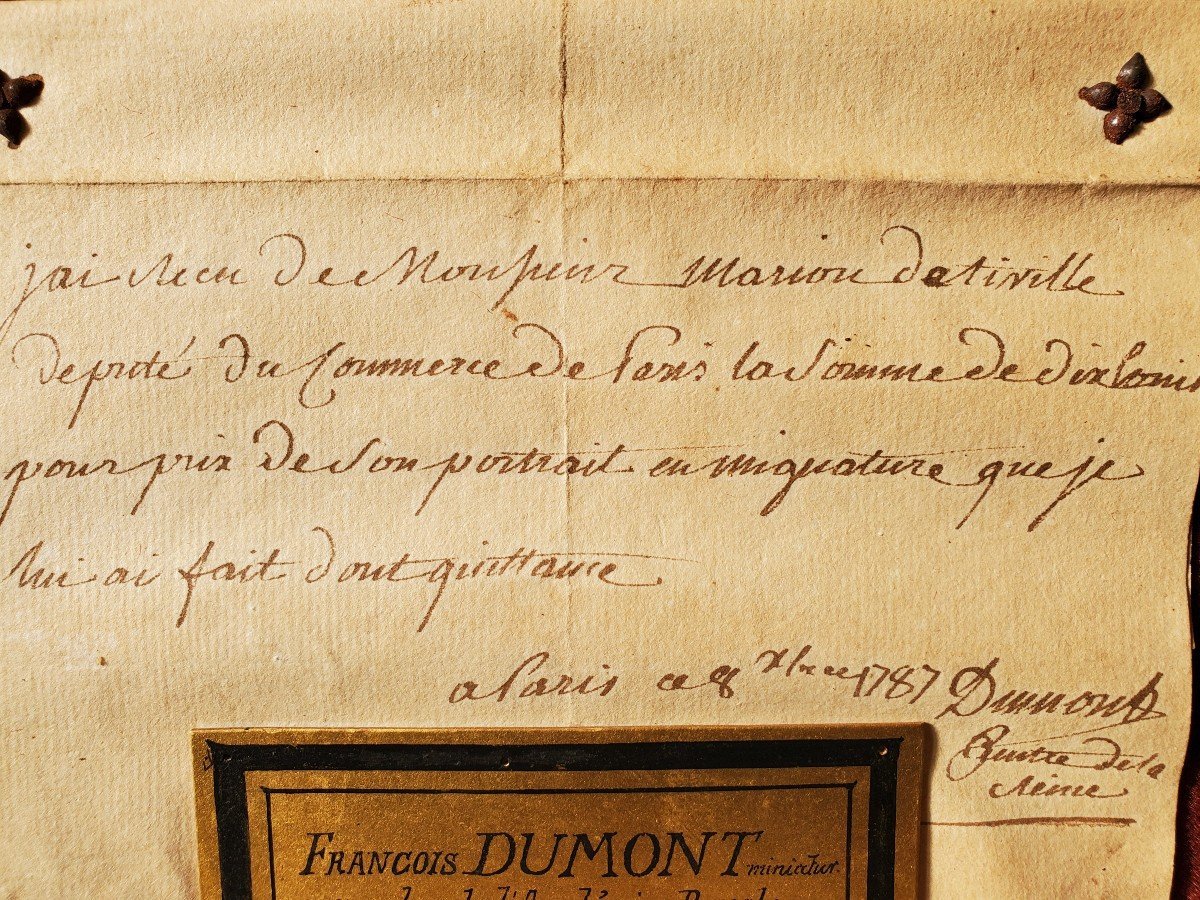 jai recu de Monsieur Marion
deputé du Commerce de Paris la Somme de dix Louis
pour prix de Son portrait en mignature que je
lui ai fait dont quittance
a Paris ce 8 Xbre 1787 Dumont
Peintre de la
Reine
FRANCOIS DUMONT miniatur.